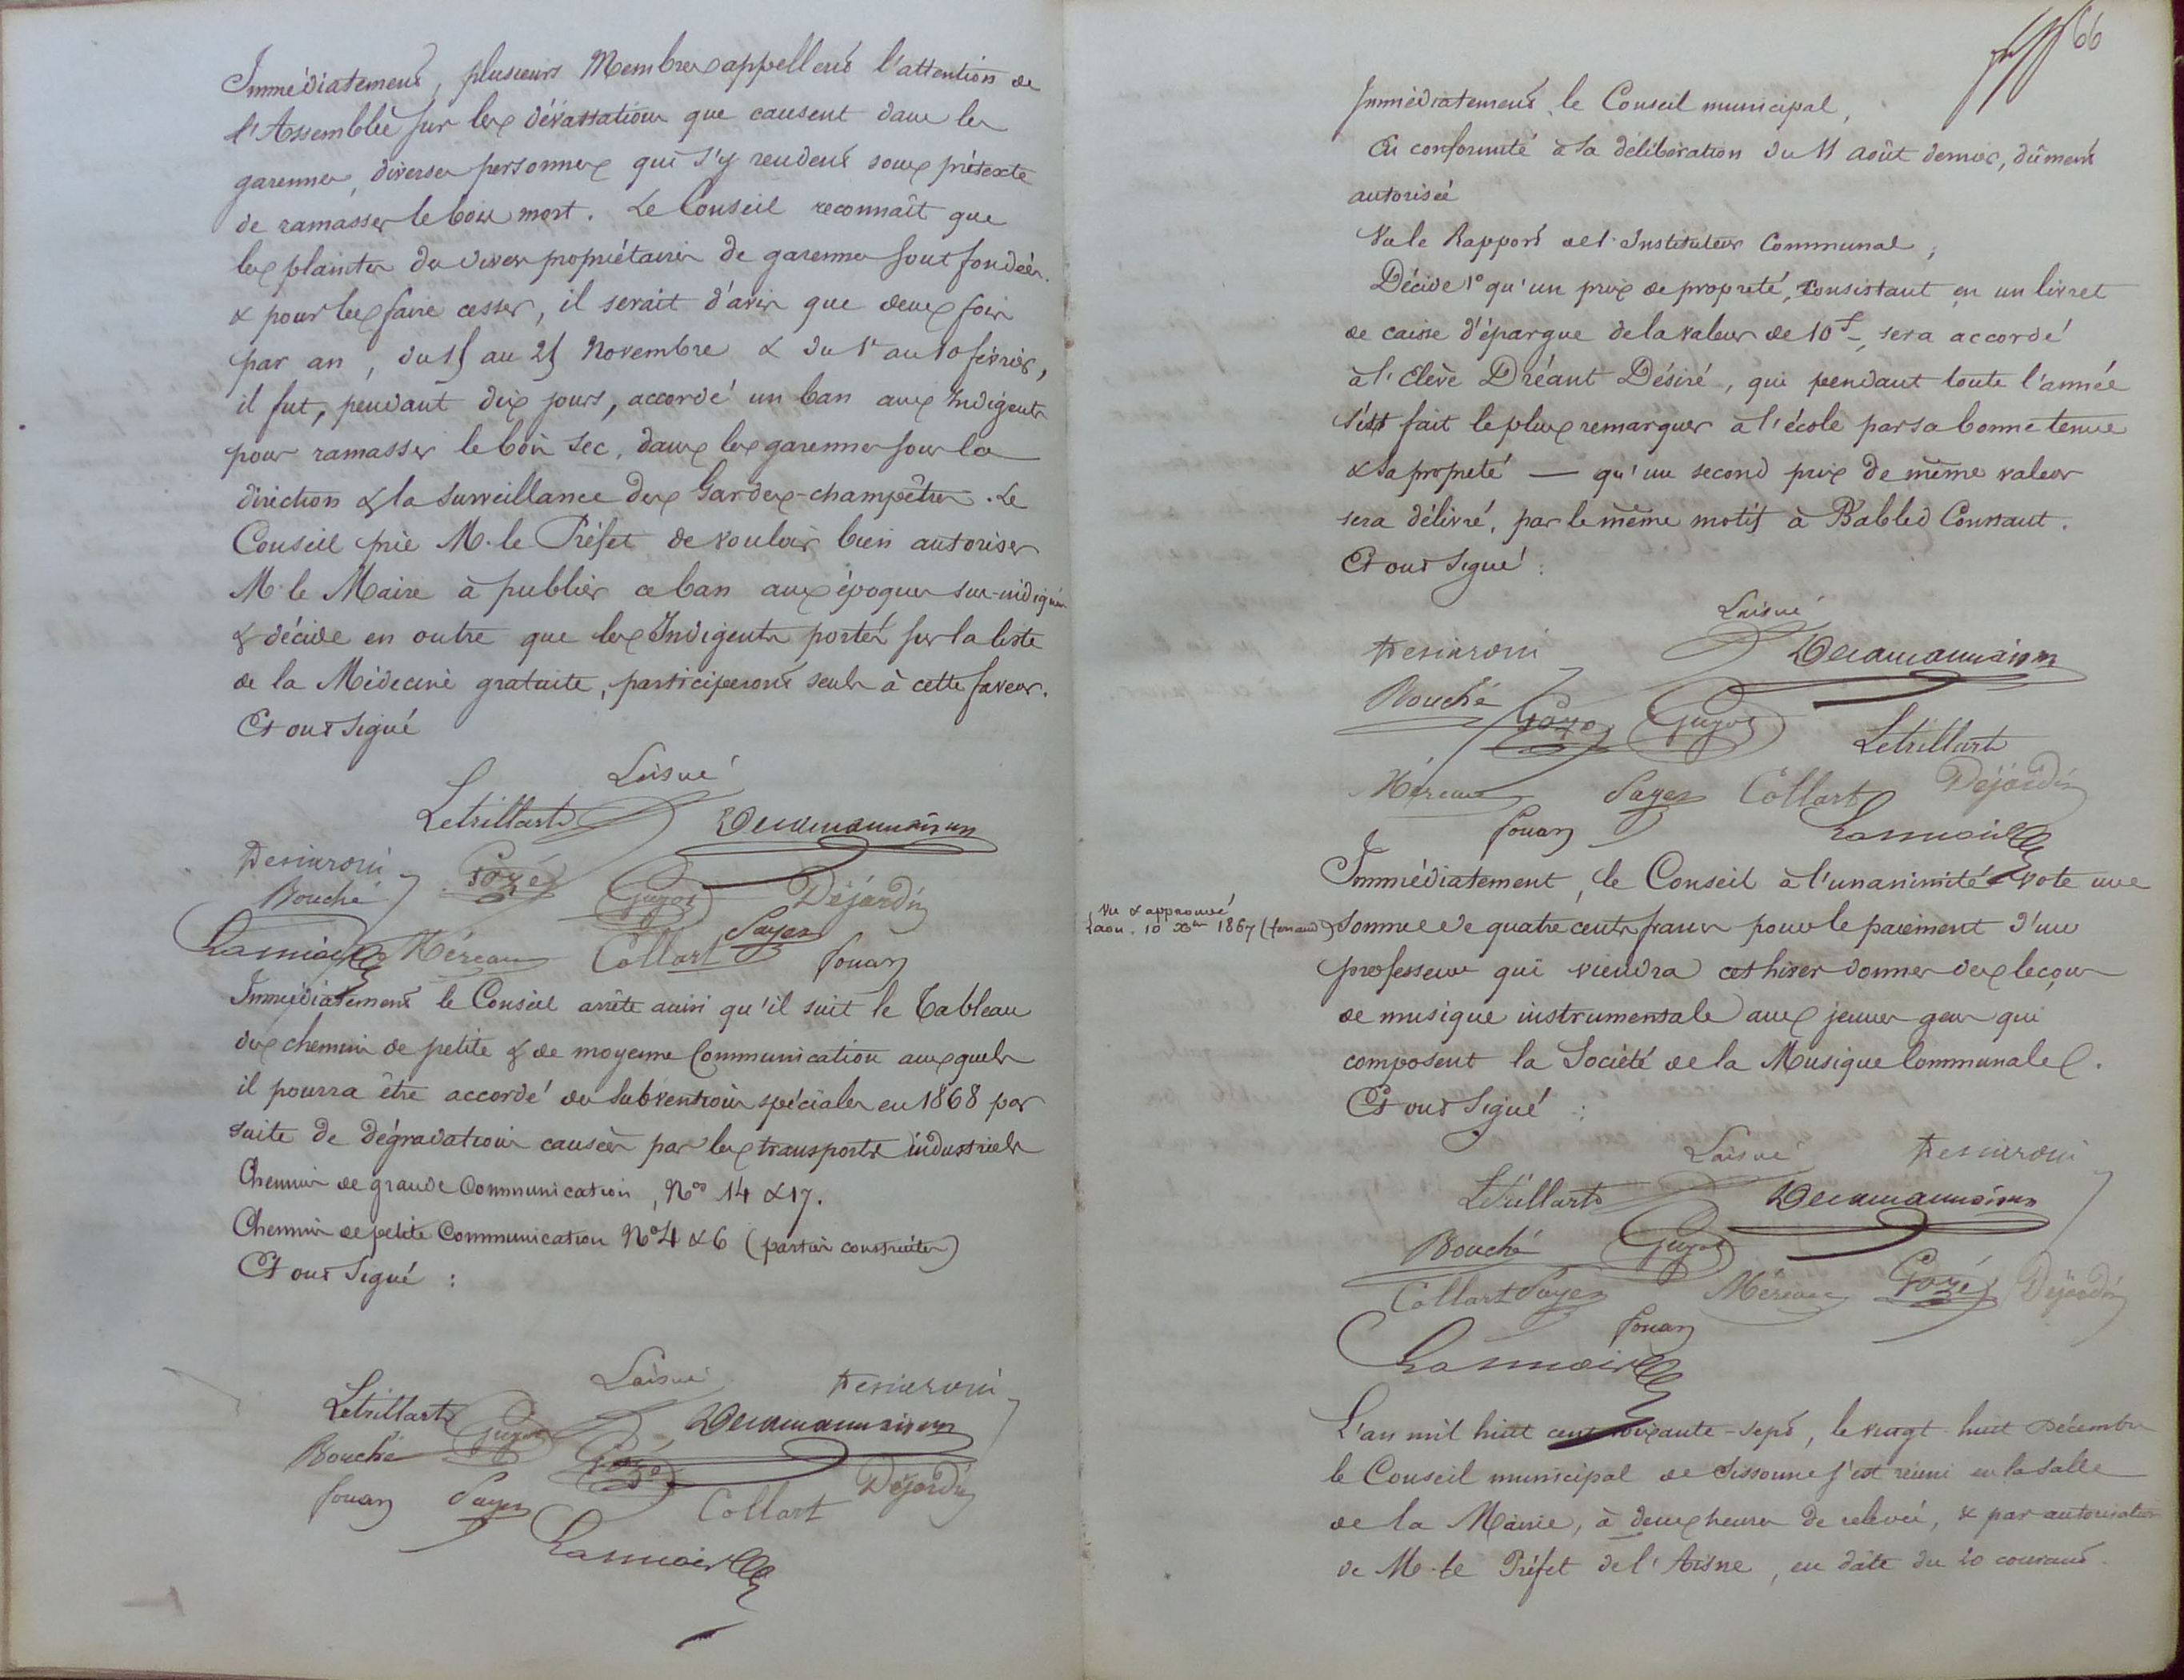 Immédiatement, plusieurs Membres appellent l'attention de
l'Assemblée sur les dévastations que causent dans les
garennes, diverses personnes qui s'y rendent sous prétexte
de ramasser le bois mort. Le Conseil reconnaît que
les plaintes de divers propriétaires de garennes sont fondées.
& pour les faire cesser, il serait d'avis que deux fois
par an, du 15 au 25 Novembre & du 1er au 10 février,
il fut, pendant dix jours, accordé un ban aux Indigents
pour ramasser le bois sec, dans les garennes sous la
direction & la surveillance des Gardes-champêtres. Le
Conseil prie M. le Préfet de vouloir bien autoriser
M. le Maire à publier ce ban aux époques sus-indiquées
& décide en outre que les Indigents portés sur la liste
de la Médecine gratuite, participeront seuls à cette faveur.
Et ont signé
Laisné
Letrillart
Gozé Guyot Déjardin
Bouché
Lannois Méreau Collart Payer fouan
Immédiatement le Conseil arrête ainsi qu'il suit le Tableau
des chemins de petite & de moyenne Communication auxquels
il pourra être accordé des subventions spéciales en 1868 par
suite de dégradations causées par les transports industriels
Chemins de grande Communication, Nos 14 & 17.
Chemins de petite Communication No 4 & 6 (parties construites)
Et ont signé :
Laisné
Letrillart Guyot
Bouché Gozé Déjardin
fouan Payer Collart
Lannois
66
Immédiatement, le Conseil municipal,
En conformité à sa délibération du 11 août dernier, dûment
autorisée
Vu le Rapport de l'Instituteur Communal ;
Décide 1° qu'un prix de propreté, consistant en un livret
de caisse d'épargne de la valeur de 10f –, sera accordé
à l'Elève Dréant Désiré, qui pendant toute l'année
s'est fait le plus remarquer à l'école par sa bonne tenue
& sa propreté — qu'un second prix de même valeur
sera délivré, par le même motif à Babled Constant.
Et ont signé :
Laisné
Bouché Gozé Guyot Letrillart
Méreau Payer Collart Déjardin
fouan Lannois
Immédiatement, le Conseil à l'unanimité vote une
Vu & approuvé
Laon. 10 Xbre 1867
somme de quatre cents francs pour le paiement d'un
professeur qui viendra cet hiver donner des leçons
de musique instrumentale aux jeunes gens qui
composent la Société de la Musique Communale.
Et ont signé :
Laisné
Letrillart
Bouché Guyot
Collart Payer Méreau Gozé Déjardin
fouan
Lannois
L'an mil huit cent soixante-sept, le vingt huit Décembre
le Conseil municipal de Sissonne s'est réuni en la salle
de la Mairie, à deux heures de relevée, & par autorisation
de M. le Préfet de l'Aisne, en date du 20 courant.